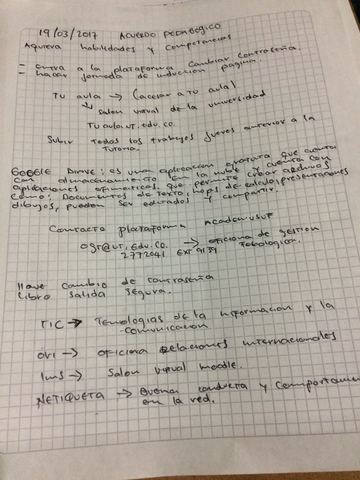 19/03/2017 Acuerdo pedagógico
Aquiera habilidades y competencias
- entra a la plataforma cambiar contraseña.
- hacer jornada de inducción pagina.
Tu aula → (acesar a tu aula)
↳ Salon virual de la universidad
Tu aula.ut.edu.co.
Subir todos los trabajos jueves anterior a la
Tutoria.
Google Drive: es una aplicacion gratuita que cuenta
con almacenamiento en la nube y cuenta con
aplicaciones ofimaticas, que permite crear archivos
como: Documentos de texto, hojas de calculo, presentaciones
dibujos, pueden ser editados y compartir.
Contacto plataforma Academusoft
ogt@ut.edu.co. → oficiona de gestion
2772041 Ext 9139 Tecnologica.
llave cambio de contraseña
libro salida segura.
TIC → Tecnologias de la informacion y la
comunicacion
ORI → oficina Relaciones internacionales
lms → Salon virtual moodle.
NETIQUETA → Buena conducta y comportamien
en la red.